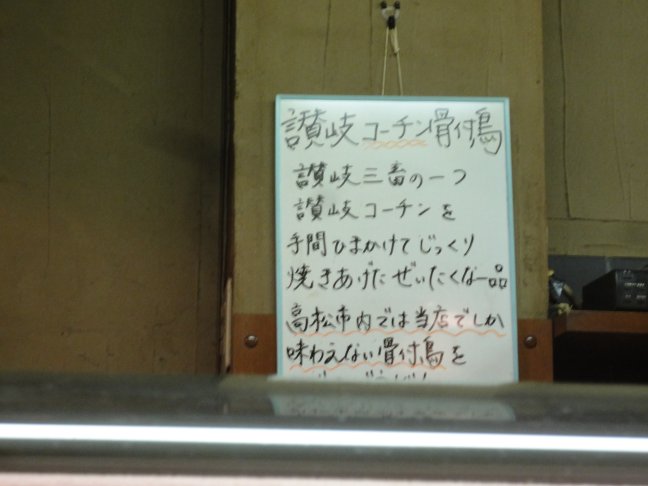 讃岐コーチン骨付鳥
讃岐三畜の一つ
讃岐コーチンを
手間ひまかけてじっくり
焼きあげたぜいたくな一品
高松市内では当店でしか
味わえない骨付鳥を